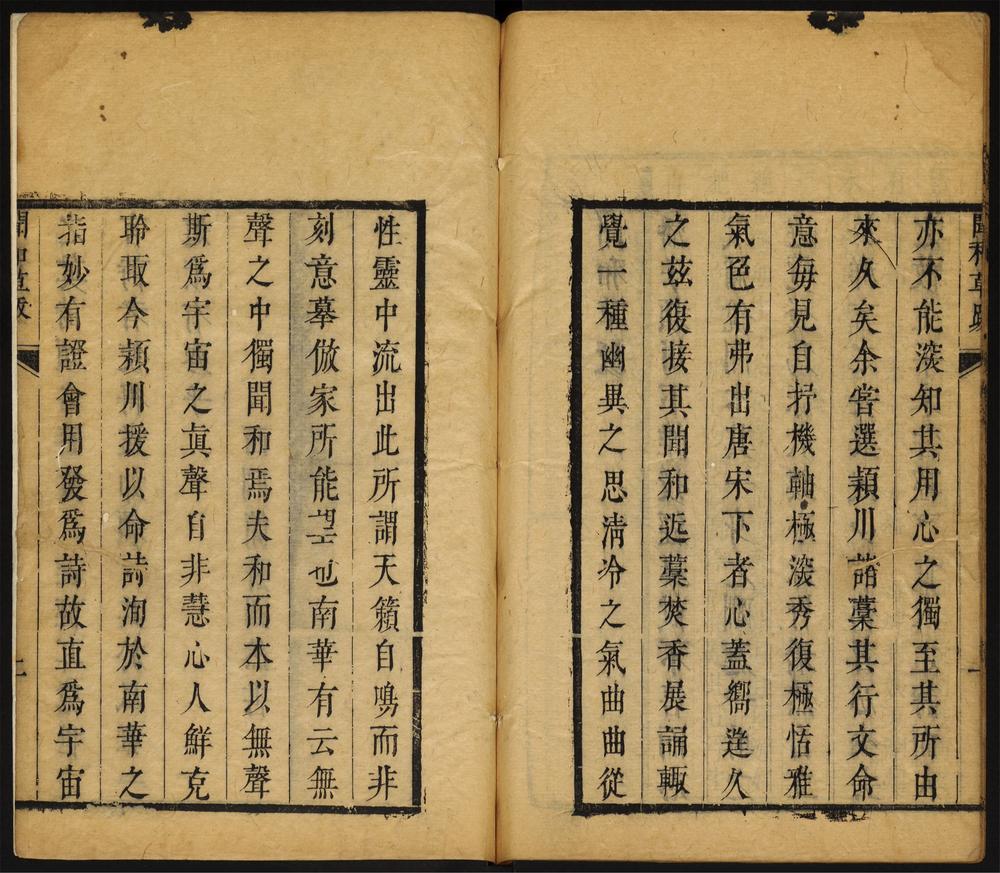 聞和草敘
一
亦不能湥知其用心之獨至其所由
來久矣余甞選潁川諸藁其行文命
意每見自抒機軸極湥秀復極恬雅
氣色有弗出唐宋下者心葢嚮逹久
之茲復接其聞和近藁焚香展誦輙
覺一種幽異之思淸冷之氣曲曲從
性靈中流出此所謂天籟自鳴而非
刻意摹倣家所能望也南華有云無
聲之中獨聞和焉夫和而本以無聲
斯爲宇宙之眞聲自非慧心人鮮克
聆取今潁川援以命詩洵於南華之
指妙有證會用發爲詩故直爲宇宙
聞和草敘